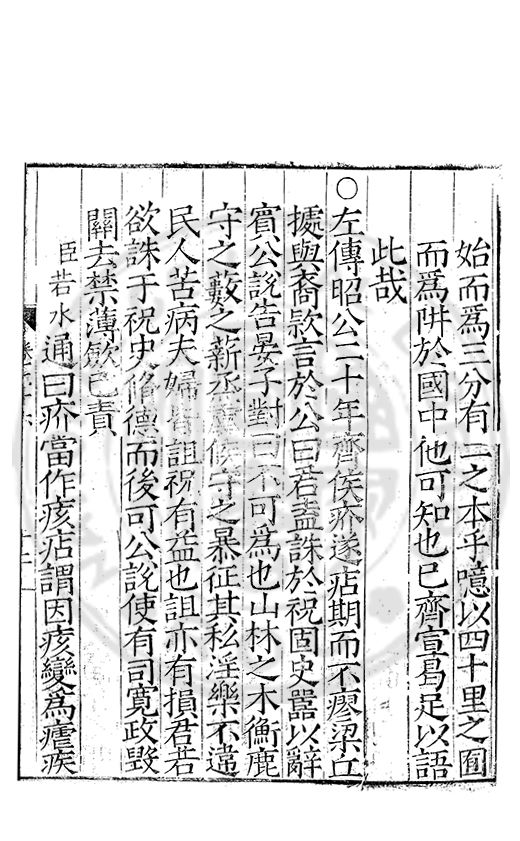 始而爲三分有二之本乎噫以四十里之囿
而爲阱於國中他可知也已齊宣曷足以語
此哉
○左傳昭公二十年齊侯疥遂痁期而不瘳梁丘
據與裔款言於公曰君盍誅於祝固史嚚以辭
賓公說告晏子對曰不可爲也山林之木衡鹿
守之藪之薪蒸虞候守之暴征其私淫樂不違
民人苦病夫婦皆詛祝有益也詛亦有損君若
欲誅于祝史脩德而後可公說使有司寬政毀
關去禁薄斂已責
臣若水通曰疥當作痎痁謂因痎變爲瘧疾